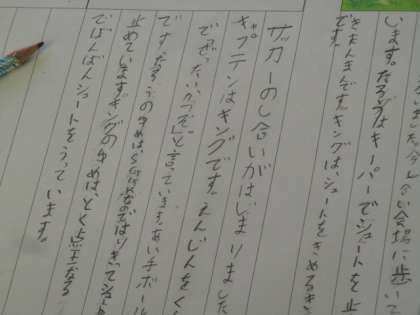 した。し合い会場に歩いて
います。たろうはキーパーでシュートを止
きまんまんです。キングは、シュートをきめるき
です。
サッカーのし合いがはじまりました
キャプテンはキングです。えんじんをく
で「ぜったいかつぞ」と言っています。あい手ボール
です。たろうのゆめは、はりきってシュート
止めています。キングのゆめは、とく点王になる
でばんばんシュートをうっています。